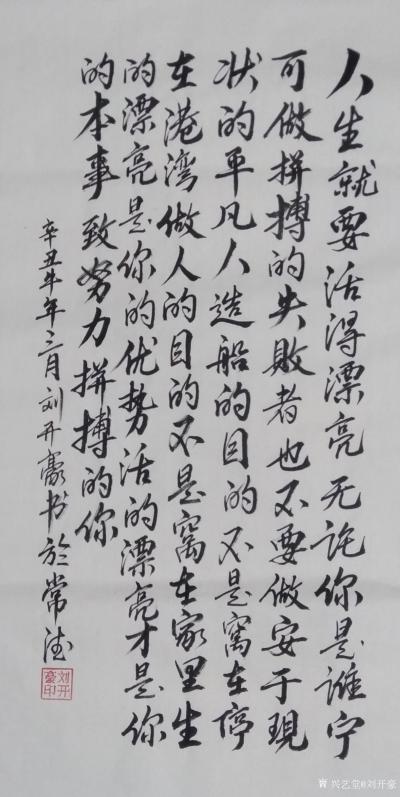 人生就要活得漂亮无论你是谁宁
可做拼搏的失败者也不要做安于现
状的平凡人造船的目的不是窝在停
在港湾做人的目的不是窝在家里生
的漂亮是你的优势活的漂亮才是你
的本事致努力拼搏的你
辛丑牛年三月刘开豪书於常德
刘开豪印
兴艺堂@刘开豪